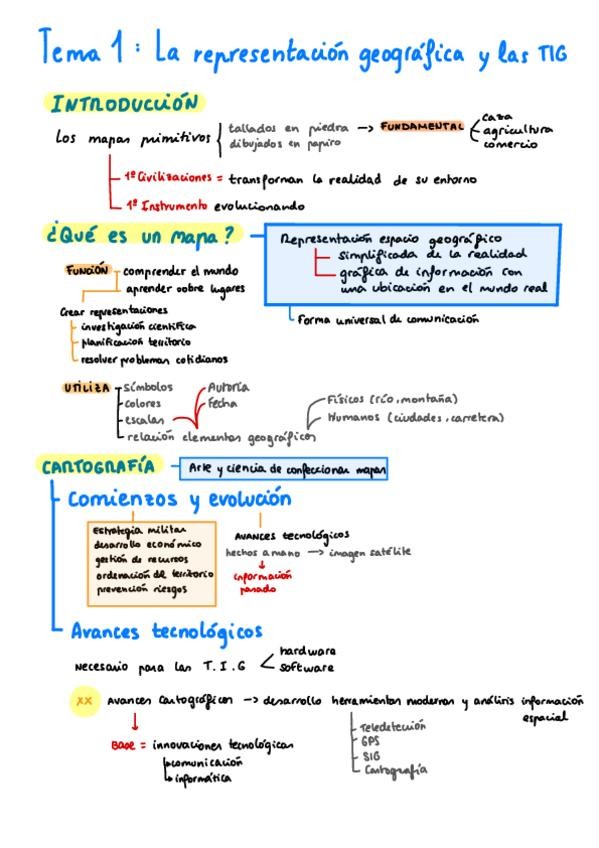 Tema 1: La representación geográfica y las TIG
INTRODUCCIÓN
Los mapas primitivos
tallados en piedra
dibujados en papiro
→ FUNDAMENTAL
caza
agricultura
comercio
1ª Civilizaciones = transforman la realidad de su entorno
1º Instrumento evolucionando
¿Qué es un mapa?
Representación espacio geográfico
simplificada de la realidad
gráfica de información con
una ubicación en el mundo real
Forma universal de comunicación
FUNCIÓN
comprender el mundo
aprender sobre lugares
Crear representaciones
investigación científica
planificación territorio
resolver problemas cotidianos
UTILIZA
símbolos
colores
escalas
relación elementos geográficos
Autoría
fecha
Físicos (río, montaña)
Humanos (ciudades, carretera)
CARTOGRAFÍA
Arte y ciencia de confeccionar mapas
Comienzos y evolución
Estrategia militar
desarrollo económico
gestión de recursos
ordenación del territorio
prevención riesgos
AVANCES tecnológicos
hechos a mano → imagen satélite
información
pasado
Avances tecnológicos
necesario para las T.I.G
hardware
software
XX Avances Cartográficos → desarrollo herramientas modernas y análisis información
espacial
BASE = innovaciones tecnológicas
comunicación
informática
Teledetección
GPS
SIG
Cartografía